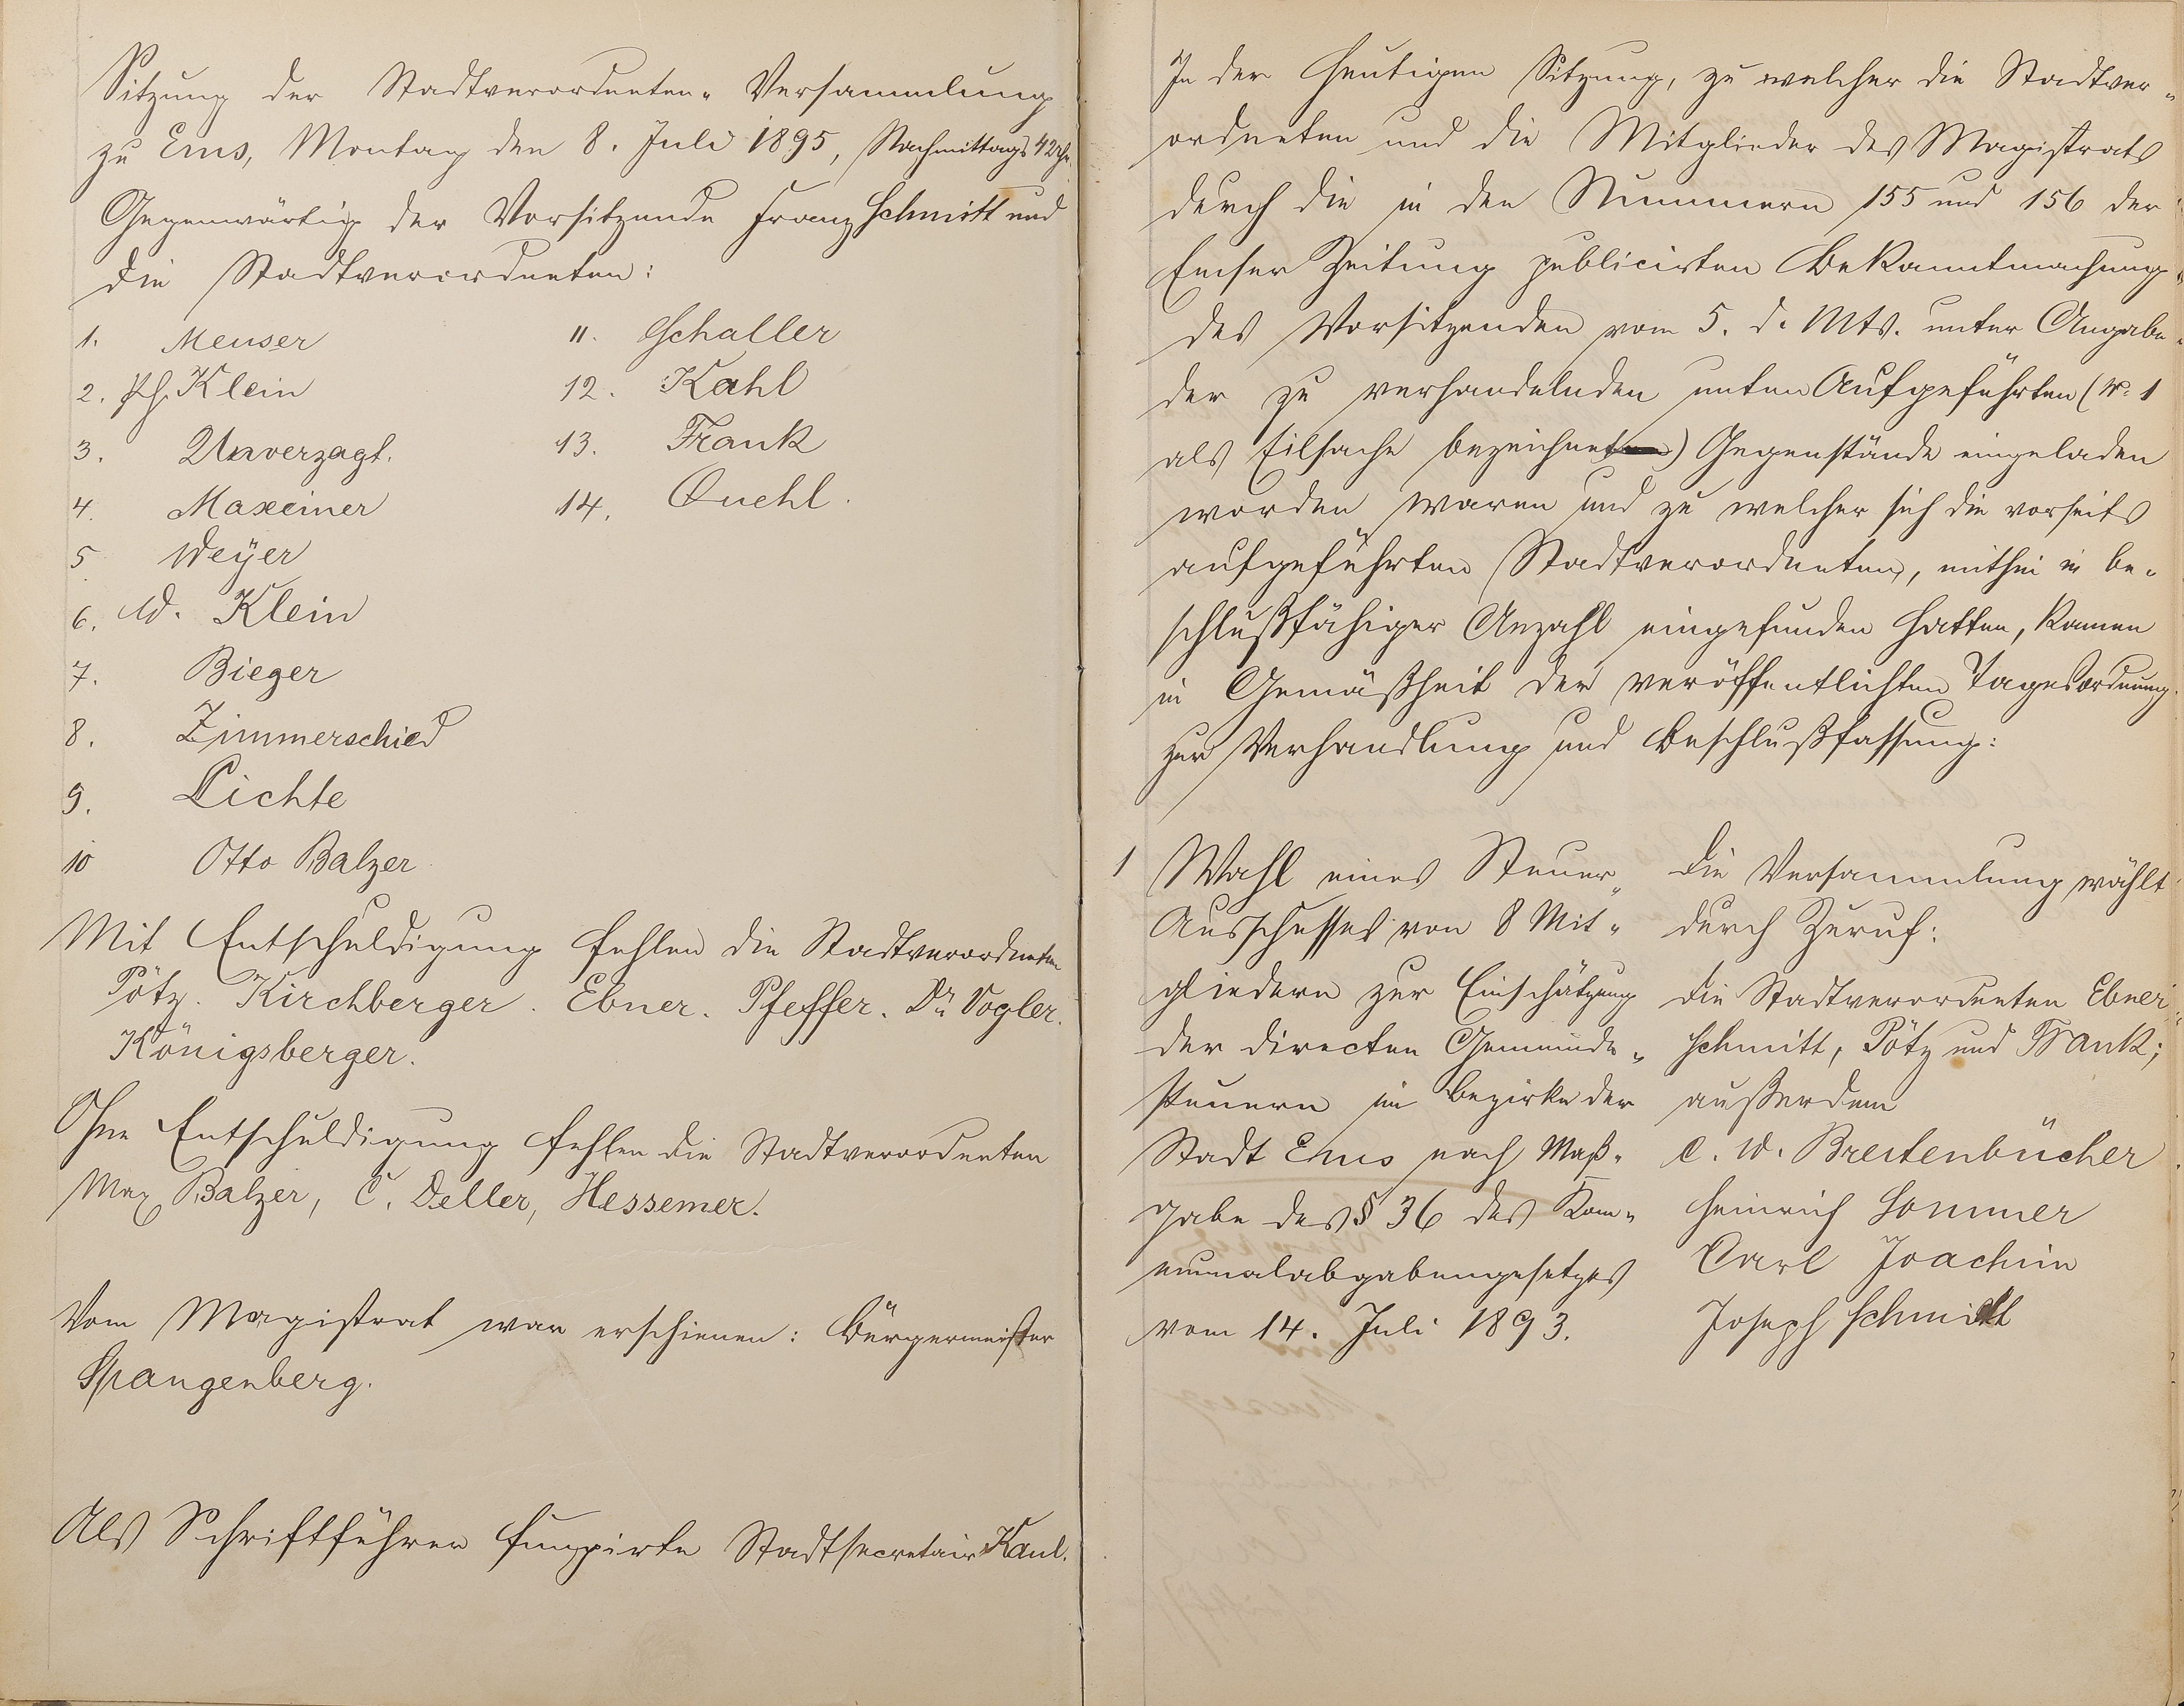 Sitzung der Stadtverordneten-Versammlung
zu Ems, Montag den 8. Juli 1895, Nachmittags 4 Uhr.
Gegenwärtig der Vorsitzende Franz Schmitt und
die Stadtverordneten:
1. Meuser
2. Ph. Klein
3. Unverzagt.
4. Maxeiner
5 Weÿer
6. W. Klein
7. Bieger
8. Zimmerschied
9. Lichte
10 Otto Balzer
11. Schaller
12. Kahl
13. Frank
14. Quehl.
Mit Entschuldigung fehlen die Stadtverordneten
Pötz. Kirchberger. Ebner. Pfeffer. Dr. Vogler.
Königsberger.
Ohne Entschuldigung fehlen die Stadtverordneten
Max Balzer, C. Deller, Hessemer.
Vom Magistrat war erschienen: Bürgermeister
Spangenberg.
Als Schriftführer fungirte Stadtsecretair Kaul.
In der heutigen Sitzung, zu welcher die Stadtver-
ordneten und die Mitglieder des Magistrats
durch die in den Nummern 155 und 156 der
Emser Zeitung publicirten Bekanntmachung
des Vorsitzenden vom 5. d. Mts. unter Angabe
der zu verhandelnden unten Aufgeführten (No. 1
als Eilsache bezeichnet) Gegenstände eingeladen
worden waren und zu welcher sich die vorseits
aufgeführten Stadtverordneten, mithin in be-
schlußfähiger Anzahl eingefunden hatten, kamen
in Gemäßheit der veröffentlichten Tagesordnung
zur Verhandlung und Beschlußfassung:
1 Wahl eines Steuer-
Ausschusses von 8 Mit-
gliedern zur Einschätzung
der directen Gemeinde-
steuern im Bezirke der
Stadt Ems nach Maß-
gabe des § 36 des Kom-
munalabgabengesetzes
vom 14. Juli 1893.
Die Versammlung wählt
durch Zuruf:
die Stadtverordneten Ebner
Schmitt, Pötz und Frank;
außerdem
C. W. Breitenbücher
Heinrich Sommer
Carl Joachim
Joseph Schmidt